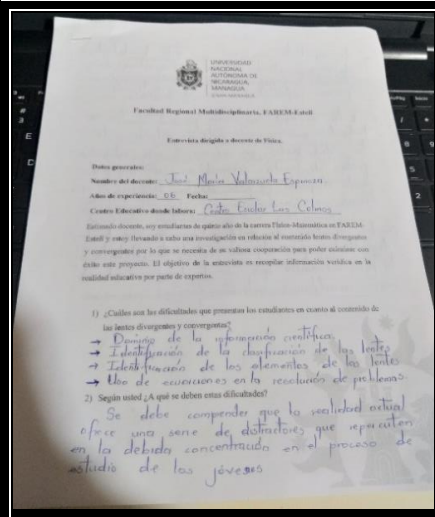 UNIVERSIDAD
NACIONAL
AUTÓNOMA DE
NICARAGUA,
MANAGUA
Facultad Regional Multidisciplinaria, FAREM-Estelí
Entrevista dirigida a docente de Física.
Datos generales:
Nombre del docente: José María Valenzuela Espinoza
Años de experiencia: 06 Fecha:
Centro Educativo donde labora: Centro Las Colinas
Estimado docente, soy estudiantes de quinto año de la carrera Física-Matemática en FAREM-
Estelí y estoy llevando a cabo una investigación en relación al contenido lentes divergentes
y convergentes por lo que se necesita de su valiosa cooperación para poder culminar con
éxito este proyecto. El objetivo de la entrevista es recopilar información verídica en la
realidad educativa por parte de expertos.
1) ¿Cuáles son las dificultades que presentan los estudiantes en cuanto al contenido de
las lentes divergentes y convergentes?
→ Dominio de la información científica.
→ Identificación de la clasificación de las lentes
→ Identificación de los elementos de las lentes
→ Uso de ecuaciones en la resolución de problemas.
2) Según usted ¿A qué se deben estas dificultades?
Se debe comprender que la realidad actual
ofrece una serie de distractores que repercuten
en la debida concentración en el proceso de
estudio de los jóvenes